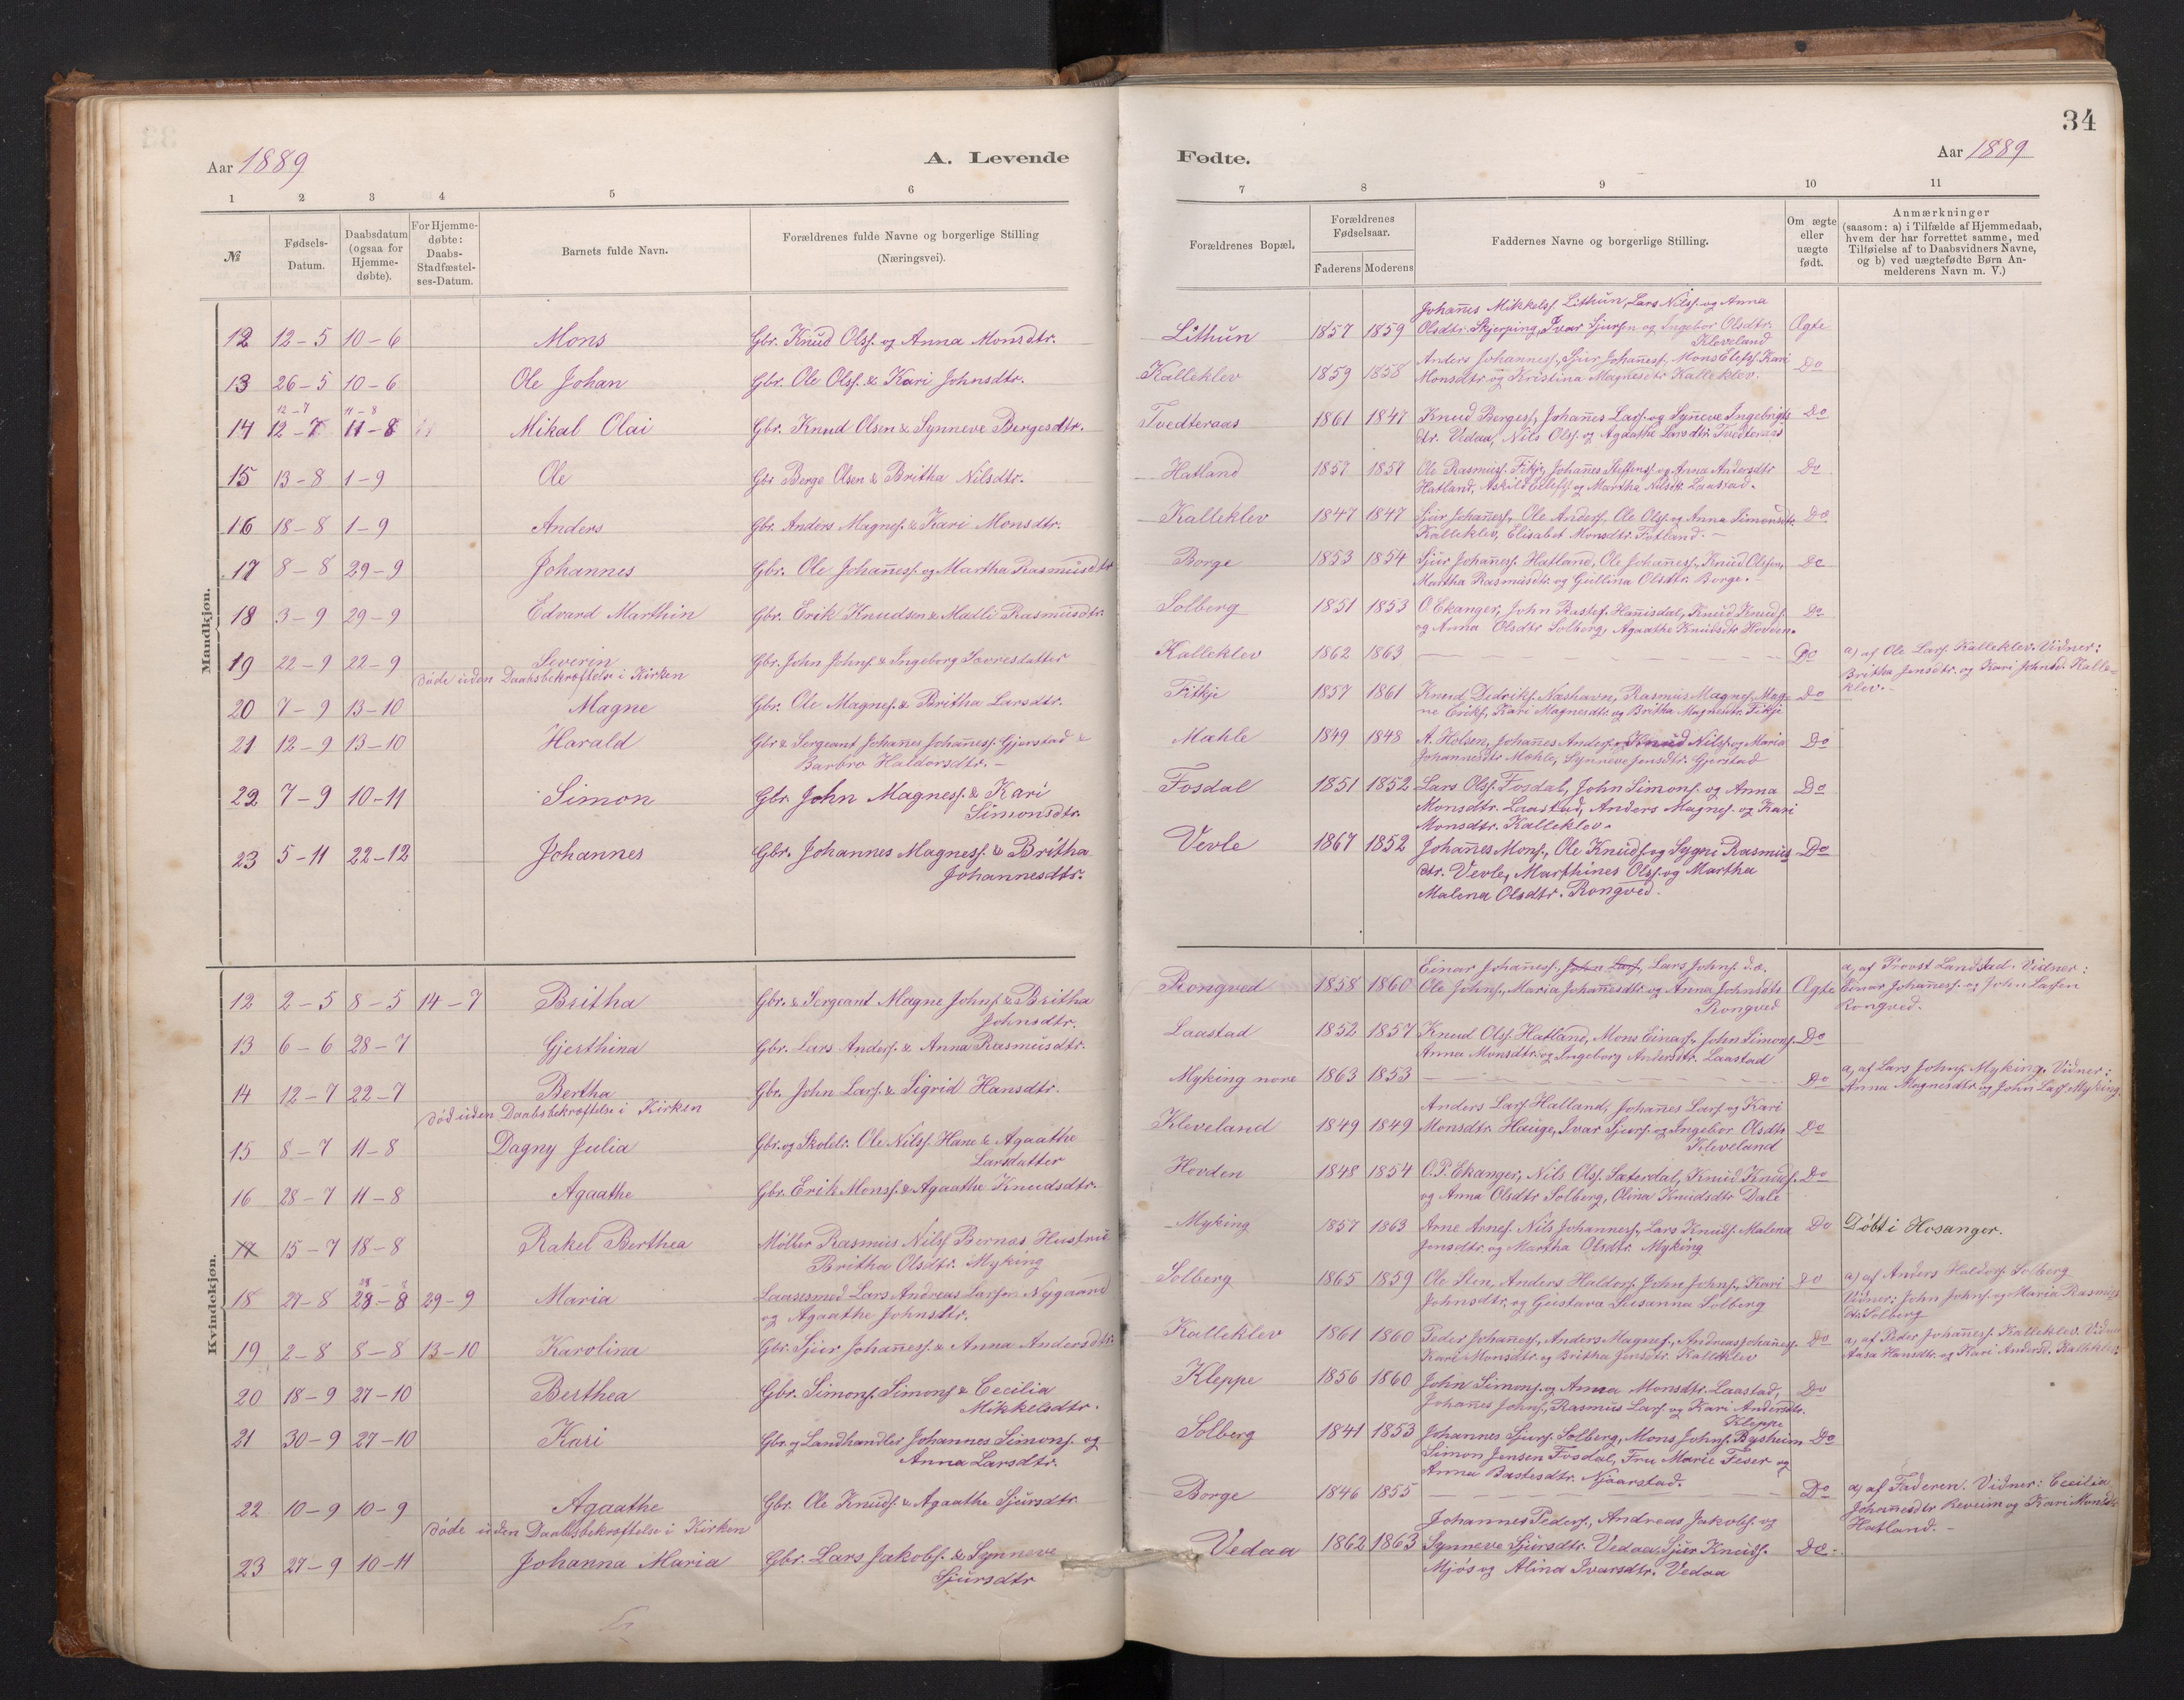 34
Aar 1889 A. Levende
1 2 3 4 5 6
№ Fødsels-Datum. Daabsdatum (ogsaa for Hjemme-døbte). For Hjemme-døbte: Daabs-Stadfæstel-ses-Datum. Barnets fulde Navn. Forældrenes fulde Navne og borgerlige Stilling (Næringsvei).
Mandkjøn.
12 12-5 10-6 Mons Gbr. Knud Olss. og Anna Monsdtr.
13 26-5 10-6 Ole Johan Gbr. Ole Olss. & Kari Johnsdtr.
12-7 11-8
14 12-7 11-8 Mikal Olai Gbr. Knud Olsen & Synneve Bergesdtr.
15 13-8 1-9 Ole Gbr Berge Olsen & Britha Nilsdtr.
16 18-8 1-9 Anders Gbr. Anders Magness. & Kari Monsdtr.
17 8-8 29-9 Johannes Gbr. Ole Johaness. og Martha Rasmusdtr
18 3-9 29-9 Edvard Marthin Gbr. Erik Knudsen & Madli Rasmusdtr.
19 22-9 22-9 Severin Gbr. John Johns. & Ingeborg Sovresdatter
døde uden Daabsbekræftelse i Kirken
20 7-9 13-10 Magne Gbr. Ole Magness. & Britha Larsdtr.
21 12-9 13-10 Harald Gbr & Sergeant Johanes Johaness. Gjerstad &
Barbro Haldorsdtr. -
22 7-9 10-11 Simon Gbr. John Magness. & Kari
Simonsdtr.
23 5-11 22-12 Johannes Gbr. Johannes Magness. & Britha
Johannesdtr.
Kvindekjøn.
12 2-5 8-5 14-7 Britha Gbr. & Sergeant Magne Johns. & Britha
Johnsdtr.
13 6-6 28-7 Gjerthina Gbr. Lars Anders. & Anna Rasmusdtr.
14 12-7 22-7 Bertha Gbr. John Lars. & Sigrid Hansdtr.
død uden Daabsbekræftelse i Kirken
15 8-7 11-8 Dagny Julia Gbr. og Skolelr. Ole Nilss. Hane & Agaathe
Larsdatter
16 28-7 11-8 Agaathe Gbr. Erik Monss. & Agaathe Knudsdtr.
17 15-7 18-8 Rakel Berthea Möller Rasmus Nilss Bernas Hustru
Britha Olsdtr. Myking
18 27-8 28-8 29-9 Maria Laasesmed Lars Andreas Larsen Nygaard
og Agaathe Johnsdtr.
19 2-8 8-8 13-10 Karolina Gbr. Sjur Johaness. & Anna Andersdtr.
20 18-9 27-10 Berthea Gbr. Simons. Simons. & Cecilia
Mikkelsdtr.
21 30-9 27-10 Kari Gbr. og Landhandler Johannes Simons. og
Anna Larsdtr.
22 10-9 10-9 Agaathe Gbr. Ole Knuds. & Agaathe Sjursdtr
døde uden Daabsbekræftelse i Kirken
23 27-9 10-11 Johanna Maria Gbr. Lars Jakobs. & Synneve
Sjursdtr
Fødte. Aar 1889
7 8 9 10 11
Forældrenes Bopæl. Forældrenes Fødselsaar. Faderens Moderens Faddernes Navne og borgerlige Stilling. Om ægte eller uægte født. Anmærkninger (saasom: a) i Tilfælde af Hjemmedaab, hvem der har forrettet samme, med Tilføielse af to Daabsvidners Navne, og b) ved uægtefødte Børn Anmelderens Navn m. V.)
Johanes Mikkelss. Lithun, Lars Nilss. og Anna
Lithun 1857 1859 Olsdtr. Skjerping, Ivar Sjursen og Ingebor Olsdtr. Ægte
Kleveland
Kalleklev 1859 1858 Anders Johanness., Sjur Johaness. Mons Elefs. Kari Do
Monsdtr og Kristina Magnesdtr Kalleklev.
Tvedteraas 1861 1847 Knud Bergess., Johanes Lars. og Syneve Ingebrigts Do
dtr. Vedaa, Nils Olss. og Agaathe Larsdtr Tvedteraas
Hatland 1857 1857 Ole Rasmuss. Fitkje, Johanes Steffenss. og Anna Andersdtr Do
Hatland, Askild Eilefss. og Martha Nilsdtr Laastad.
Kalleklev 1847 1847 Sjur Johaness., Ole Anders., Ole Olss. og Anna Simonsdtr. Do
Kalleklev, Elisabet Monsdtr. Fotland. -
Borge 1853 1854 Sjur Johaness. Hatland, Ole Johaness., Knud Olsen, Do
Martha Rasmusdtr. og Gullina Olsdtr. Borge.
Solberg 1851 1853 O. Ekanger, John Bastes. Hanisdal, Knud Knuds. Do
og Anna Olsdtr Solberg, Agaathe Knudsdtr Hovden.
Kalleklev 1862 1863 Do a) af Ole Lars. Kalleklev. Vidner:
Britha Jensdtr. og Kari Johnsd. Kalle-
klev. -
Fitkje 1857 1861 Knud Dedriks. Næshavn, Rasmus Magness. Mag- Do
ne Eriks, Kari Magnesdtr og Britha Magnesdtr Fitkje
Mahle 1849 1848 A. Holsen, Johanes Anders. Knud Nilss. og Maria Do
Johannesdtr Mahle, Synneve Jensdtr. Gjerstad
Fosdal 1851 1852 Lars Olss. Fosdal, John Simons. og Anna Do
Monsdtr. Laastad, Anders Magnes. og Kari
Monsdtr. Kalleklev.
Vevle 1867 1852 Johanes Mons., Ole Knuds. og Sygni Rasmus Do
dtr. Vevle, Marthines Olss. og Martha
Malena Olsdtr. Rongved.
Einar Johaness., John Lars., Lars Johns. d.æ. a, af Provst Landstad. Vidner:
Rongved 1858 1860 Ole Johns., Maria Johanesdtr og Anna Johnsdtr Ægte Einar Johaness. og John Larsen
Rongved Rongved.
Laastad 1852 1857 Knud Olss. Hatland, Mons Einars., John Simons. Do
Anna Monsdtr. og Ingeborg Andersdtr. Laastad
Myking nore 1863 1853 Do a, af Lars Johns. Myking. Vidner:
Anna Magnesdtr og John Lars. Myking.
Anders Lars. Halland, Johanes Lars. og Kari
Kleveland 1849 1849 Monsdtr. Hauge, Ivar Sjurs. og Ingebor Olsdtr Do
Kleveland
Hovden 1848 1854 O. P. Ekanger, Nils Olss. Sæterdal, Knud Knuds. Do
og Anna Olsdtr Solberg, Olina Knudsdtr Dale
Myking 1857 1863 Arne Arnes. Nils Johanness., Lars Knuds. Malena Do Döbt i Hosanger.
Jensdtr. og Martha Olsdtr. Myking
Solberg 1865 1859 Ole Sten, Anders Haldors. John Johns., Kari Do a) af Anders Haldors. Solberg
Johnsdtr. og Gustava Susanna Solberg Vidner: John Johns. og Maria Rasmus
dtr. Solberg
Kalleklev 1861 1860 Peder Johaness., Anders Magnes., Andreas Johaness. Do a, af Peder Johaness. Kalleklev. Vidner
Kari Monsdtr. og Britha Jensdtr. Kalleklev Aasa Hansdtr. og Kari Andersd. Kalleklev.
Kleppe 1856 1860 John Simons. og Anna Monsdtr. Laastad, Do
Johanes Johns., Rasmus Lars. og Kari Andersdtr.
Kleppe
Solberg 1841 1853 Johannes Sjurs. Solberg, Mons Johns. Bysheim Do
Simon Jensen Fosdal, Fru Marie Feser og
Anna Bastesdtr. Njaarstad.
Borge 1846 1855 Do a) af Faderen. Vidner: Cecilia
Johanesdtr Reveim og Kari Monsdtr
Hatland. -
Johannes Peders., Andreas Jakobs. og
Vedaa 1862 1863 Synneve Sjursdtr. Vedaa, Sjur Knuds. Do
Mjøs og Alina Ivarsdtr. Vedaa